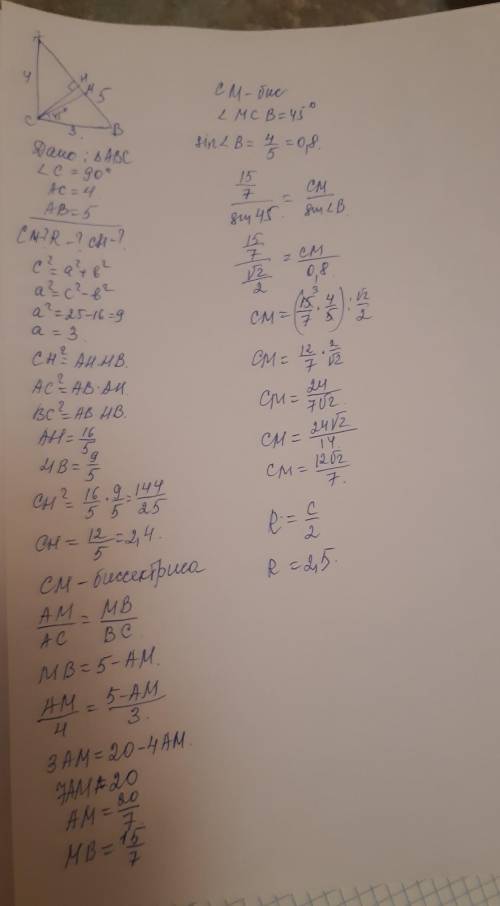 A
4
H
M
5
C
45°
3
B
Дано: ΔABC
∠C = 90°
AC = 4
AB = 5
CM? R - ? CH - ?
c² = a² + b²
a² = c² - b²
a² = 25 - 16 = 9
a = 3.
CH² = AH·HB.
AC² = AB·AH.
BC² = AB·HB.
AH = 16/5
HB = 9/5
CH² = 16/5 · 9/5 = 144/25
CH = 12/5 = 2,4.
CM - биссектриса
AM/AC = MB/BC.
MB = 5 - AM.
AM/4 = 5-AM/3.
3AM = 20 - 4AM.
7AM = 20
AM = 20/7
MB = 15/7
CM - бис
∠MCB = 45°
sin∠B = 4/5 = 0,8.
15/7 / sin 45 = CM / sin∠B.
15/7 / √2/2 = CM / 0,8
CM = (15³/7 · 4/5) : √2/2
CM = 12/7 · 2/√2
CM = 24/7√2
CM = 24√2/14
CM = 12√2/7.
R = c/2
R = 2,5.